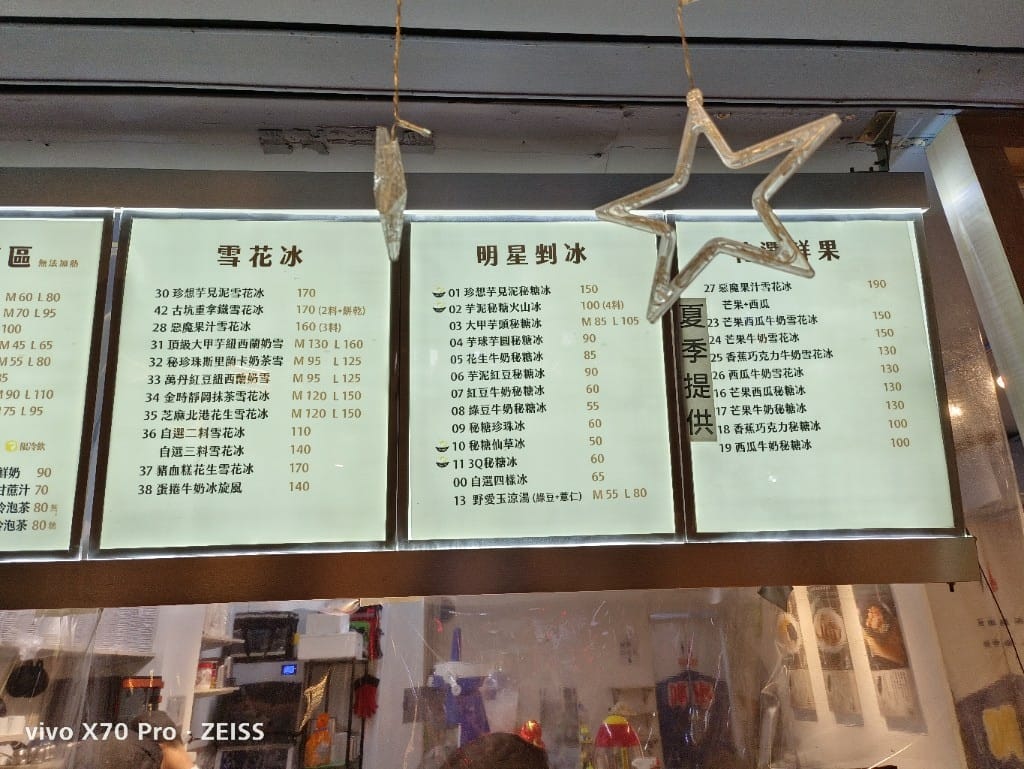 區 無法加點
M 60 L 80
M 70 L 95
100
M 45 L 65
M 55 L 80
M 90 L 110
M 75 L 95
限冷飲
鮮奶 90
甘蔗汁 70
冷泡茶 80
冷泡茶 80
雪花冰
30 珍想芋見泥雪花冰 170
42 古坑重拿鐵雪花冰 170 (2料+餅乾)
28 惡魔果汁雪花冰 160 (3料)
31 頂級大甲芋紐西蘭奶雪 M 130 L 160
32 秘珍珠斯里蘭卡奶茶雪 M 95 L 125
33 萬丹紅豆紐西蘭奶雪 M 95 L 125
34 金時靜岡抹茶雪花冰 M 120 L 150
35 芝麻北港花生雪花冰 M 120 L 150
36 自選二料雪花冰 110
自選三料雪花冰 140
37 豬血糕花生雪花冰 170
38 蛋捲牛奶冰旋風 140
明星剉冰
01 珍想芋見泥秘糖冰 150
02 芋泥秘糖火山冰 100 (4料)
03 大甲芋頭秘糖冰 M 85 L 105
04 芋球芋圓秘糖冰 90
05 花生牛奶秘糖冰 85
06 芋泥紅豆秘糖冰 90
07 紅豆牛奶秘糖冰 60
08 綠豆牛奶秘糖冰 55
09 秘糖珍珠冰 60
10 秘糖仙草冰 50
11 3Q秘糖冰 60
00 自選四樣冰 65
13 野愛玉涼湯 (綠豆+薏仁) M 55 L 80
鮮果
夏季提供
27 惡魔果汁雪花冰 190
芒果+西瓜
23 芒果西瓜牛奶雪花冰 150
24 芒果牛奶雪花冰 150
25 香蕉巧克力牛奶雪花冰 130
26 西瓜牛奶雪花冰 130
16 芒果西瓜秘糖冰 130
17 芒果牛奶秘糖冰 130
18 香蕉巧克力秘糖冰 100
19 西瓜牛奶秘糖冰 100
vivo X70 Pro · ZEISS